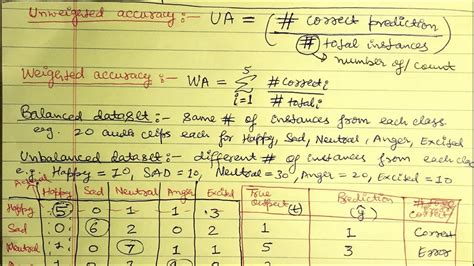 Unweighted accuracy:- UA = ( # correct prediction
# total instances )
number of / count
Weighted accuracy:- WA = 5 Σ i=1 # correct i
# total i
Balanced dataset:- same # of instances from each class
eg. 20 audio clips each for Happy, Sad, Neutral, Anger, Excited
Unbalanced dataset:- different # of instances from each class
e.g. Happy = 10, SAD = 10, Neutral = 30, Anger = 20, Excited = 10
Actual Happy Sad Neutral Anger Excited True Output (t) Prediction (y)
Happy 5 0 1 1 3
Sad 0 6 2 0 2 1 1 Correct
Neutral 1 0 7 1 1 5 3 Error